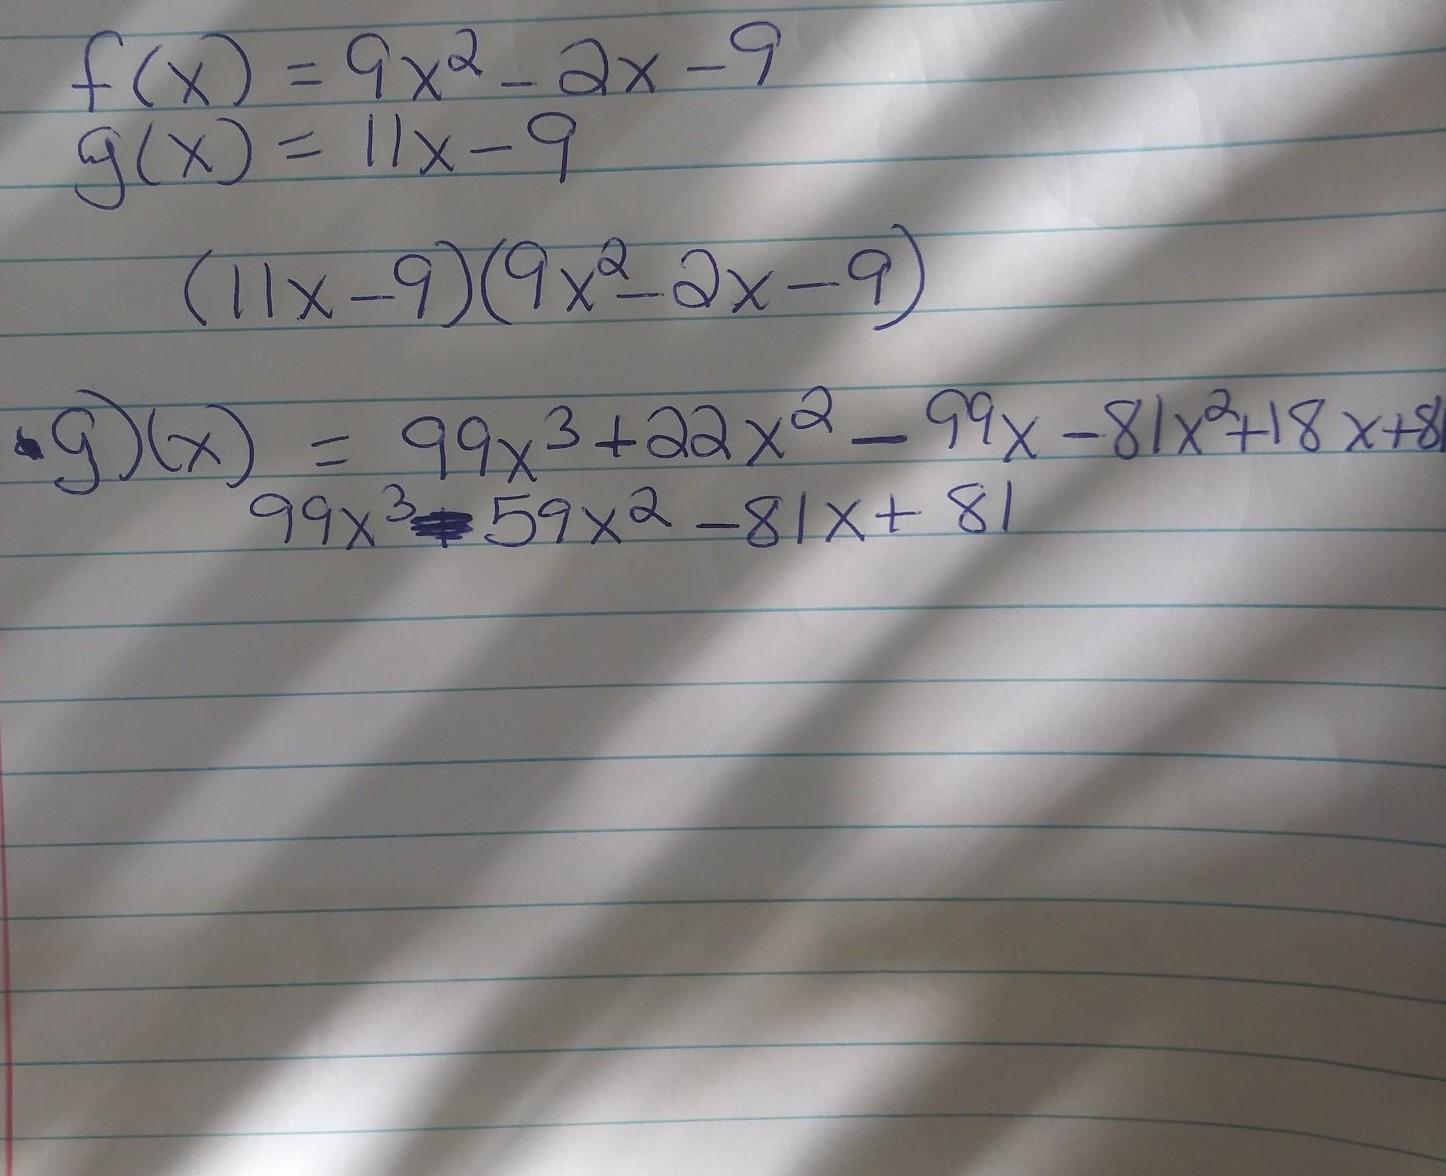 f(x) = 9x² - 2x - 9
g(x) = 11x - 9
(11x - 9)(9x² - 2x - 9)
·g)(x) = 99x³ + 22x² - 99x - 81x² + 18x + 81
99x³ - 59x² - 81x + 81